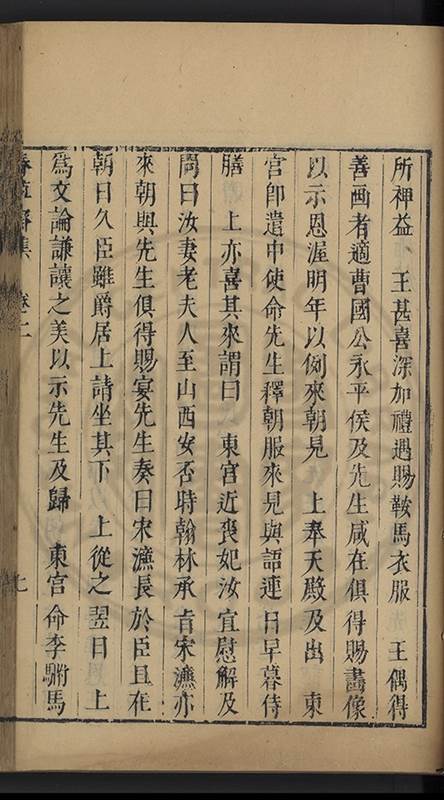 所裨益　王甚喜深加禮遇賜鞍馬衣服　王偶得
善画者適曹國公永平侯及先生咸在俱得賜畫像
以示恩渥明年以例來朝見　上奉天殿及出　東
宮即遣中使命先生釋朝服來見與語連日早暮侍
膳　上亦喜其來謂曰　東宮近喪妃汝宜慰解及
問曰汝妻老夫人至山西安否時翰林承旨宋濂亦
來朝與先生俱得賜宴先生奏曰宋濂長於臣且在
朝日久臣雖爵居上請坐其下　上從之翌日　上
為文論謙讓之美以示先生及歸　東宮命李駙馬
卷二